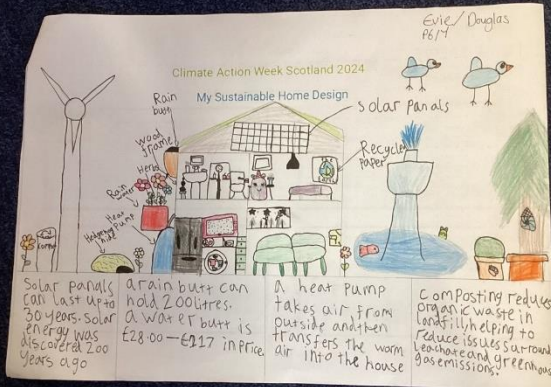 Evie/Douglas
P6/7
Climate Action Week Scotland 2024
My Sustainable Home Design
Rain
butt
Solar panals
Wood
frame
Recycle
paper
Herbs
Rain
water
Heat
Pump
Hedgehog
hide
Solar panals
can last up to
30 years. Solar
energy was
discovered 200
years ago
a rain butt can
hold 200 litres.
a water butt is
£28.00 — £217 in price.
a heat pump
takes air, from
outside and then
transfers the warm
air into the house
Composting reduces
organic waste in
landfill, helping to
reduce issues surround
leachate and greenhouse
gas emissions.